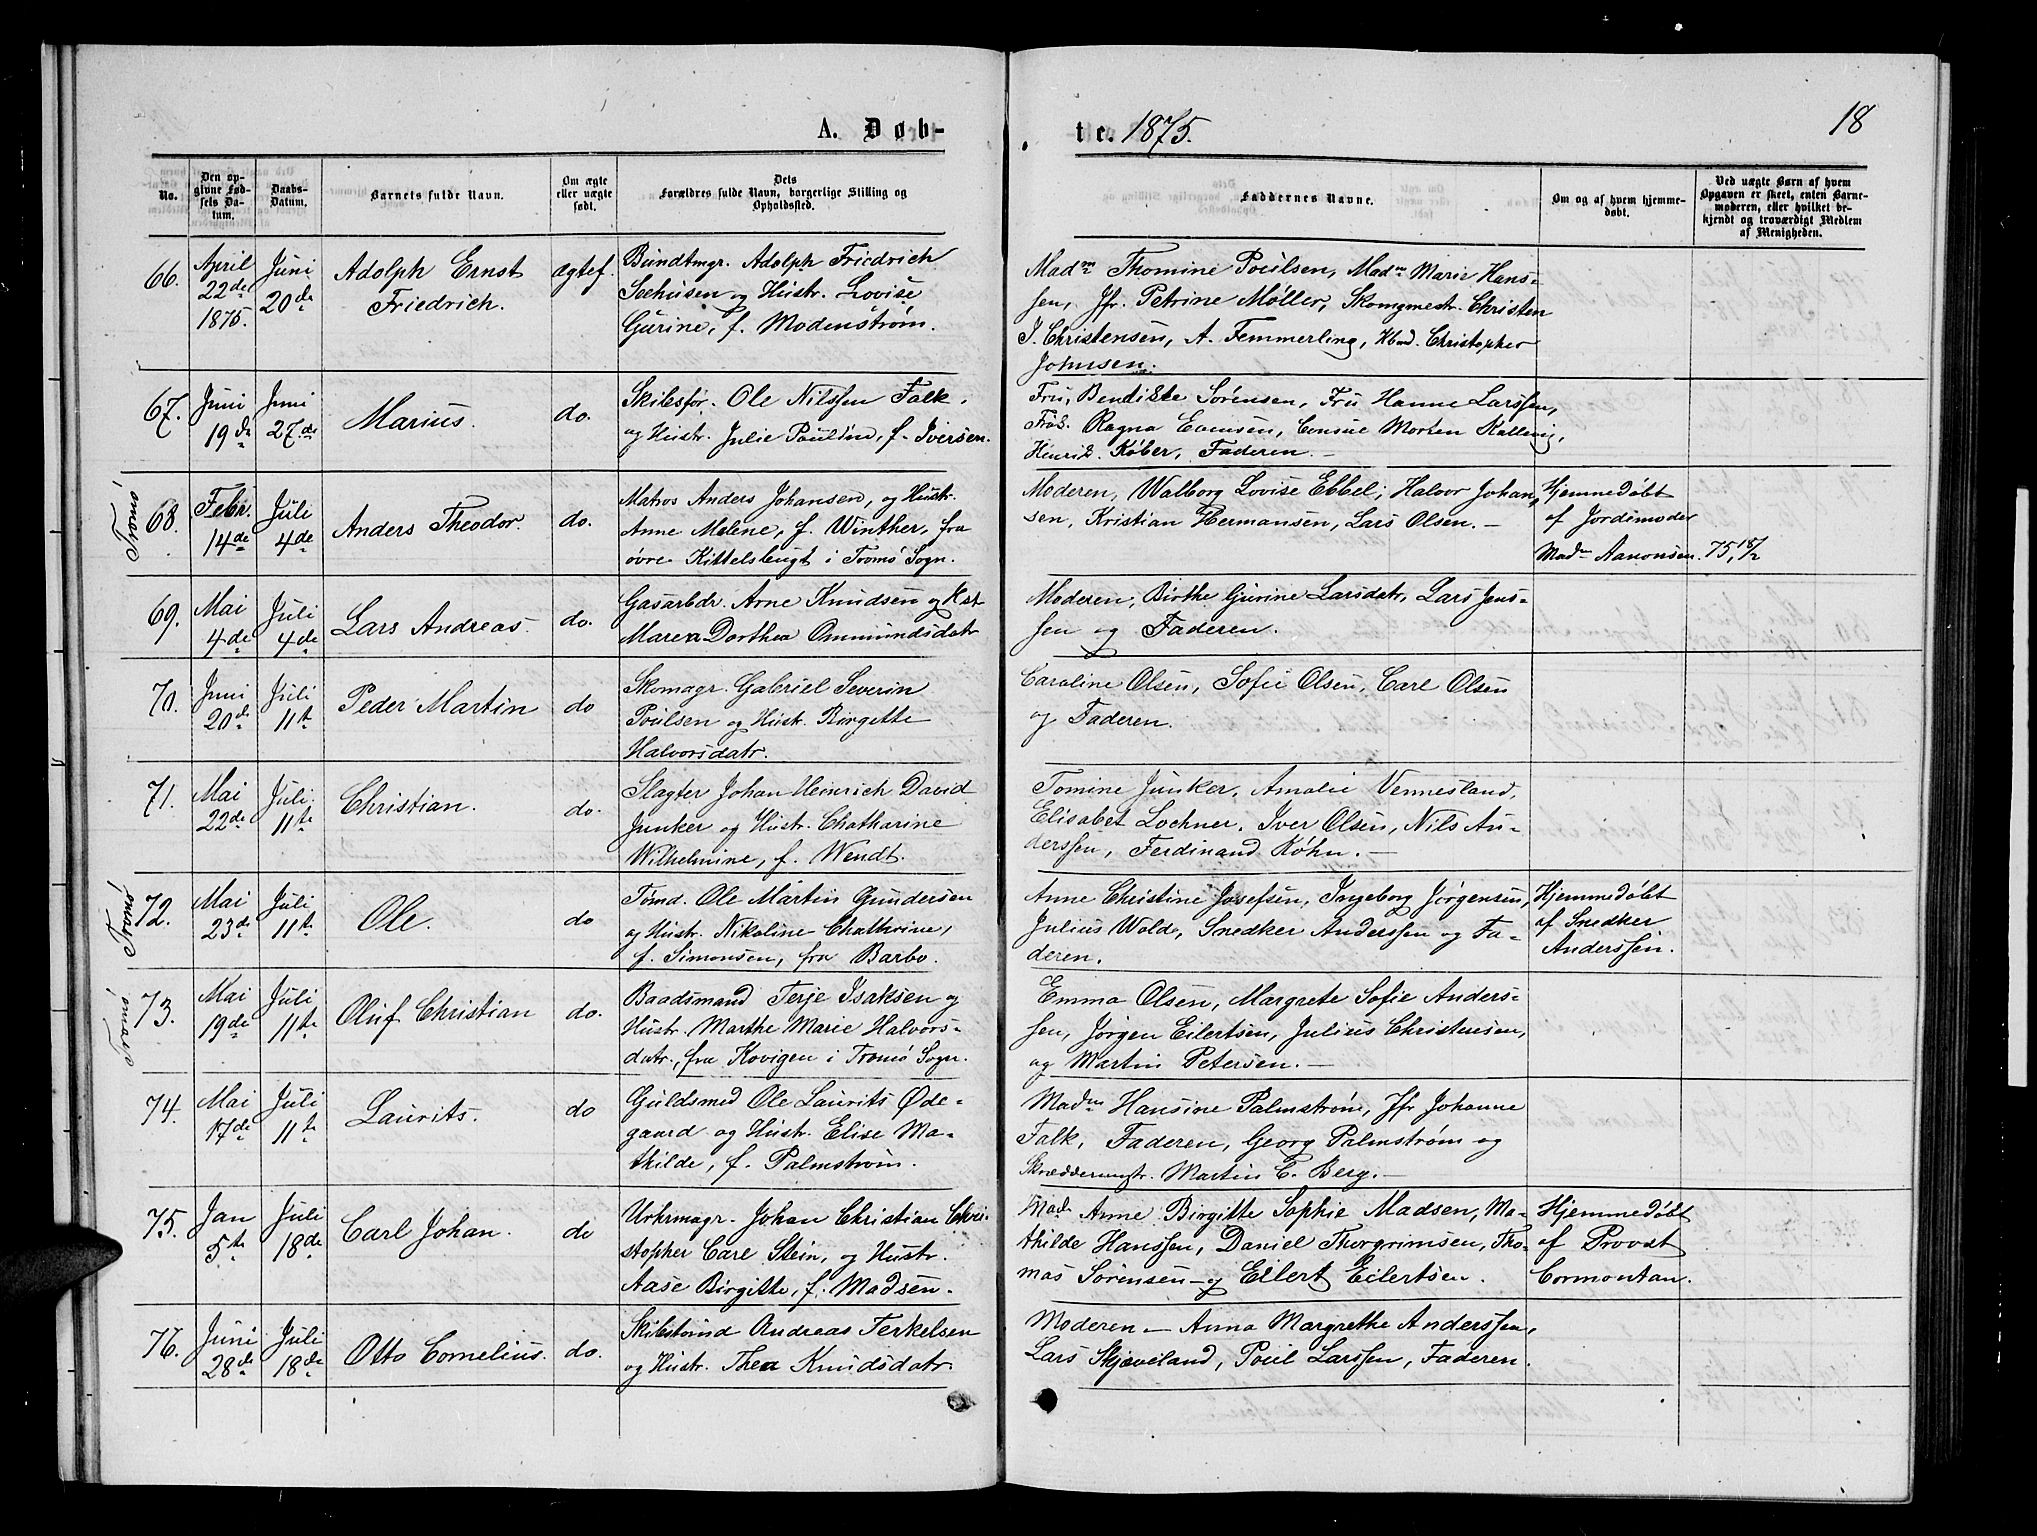 A. Døb-
te. 1875.
18
No.
Den op-
givne Fød-
sels Da-
tum.
Daabs-
Datum.
Barnets fulde Navn.
Om ægte
eller uægte
født.
Dets
Forældres fulde Navn, borgerlige Stilling og
Opholdssted.
Faddernes Navne.
Om og af hvem hjemme-
døbt.
Ved uægte Børn af hvem
Opgaven er skeet, enten Barne-
moderen, eller hvilket be-
kjendt og troværdigt Medlem
af Menigheden.
66.
April
22de
1875.
Juni
20de
Adolph Ernst
Friedrich.
Ægtef.
Bundtmgr. Adolph Friedrich
Seehusen og Hustr. Lovise
Gurine, f. Modenstrøm.
Madm Thomine Poulsen, Madm Marie Hans-
sen, Jfr. Petrine Møller, Skomgmestr. Christen
J. Christensen, A. Femmerling, Hbmd. Christopher
Johnsen.
67.
Juni
19de
Juni
27de
Marius.
do.
Skibsfør. Ole Nilssen Falk,
og Hustr. Julie Pauline, f. Iversen.
Fru, Bendikte Sørensen, Fru Hanne Larssen,
Frøk. Ragna Evensen, Consul Morten Kallevig,
Henrik Køber, Faderen. —
Tromø,
68.
Febr.
14de
Juli
4de
Anders Theodor.
do.
Matros Anders Johansen, og Hustr.
Anne Malene, f. Winther, fra
øvre Kittelsbugt i Tromø Sogn.
Moderen, Walborg Lovise Ebbel, Halvor Johan-
sen, Kristian Hermansen, Lars Olsen. —
Hjemmedøbt
af Jordemoder
Madm Aanonsen. 75, 18/2
69.
Mai
4de
Juli
4de
Lars Andreas.
do.
Gasarbdr. Arne Knudsen og Hst
Maren Dorthea Ommundsdatr
Moderen, Birthe Gurine Larsdatr, Lars Jens-
sen og Faderen.
70.
Juni
20de
Juli
11te
Peder Martin
do
Skomagr. Gabriel Severin
Poulsen og Hustr. Birgette
Halvorsdatr.
Caroline Olsen, Sofie Olsen, Carl Olsen
og Faderen.
71.
Mai
22de
Juli
11te
Christian.
do.
Slagter Johan Heinrich David
Junker og Hustr. Chatharine
Wilhelmine, f. Wendt.
Tomine Junker, Amalie Vennesland,
Elisabet Lochner, Iver Olsen, Nils An-
derssen, Ferdinand Køhn. —
Tromø,
72.
Mai
23de
Juli
11te
Ole.
do
Tømd. Ole Martin Gundersen
og Hustr. Nikoline Chathrine,
f. Simonsen, fra Barbo.
Anne Christine Josefsen, Ingeborg Jørgensen,
Julius Wold, Snedker Anderssen og Fa-
deren.
Hjemmedøbt
af Snedker
Anderssen.
Tromø,
73.
Mai
19de
Juli
11te
Oluf Christian
do.
Baadsmand Terje Isaksen og
Hustr. Marthe Marie Halvors-
datr., fra Kovigen i Tromø Sogn.
Emma Olsen, Margrete Sofie Anders-
sen, Jørgen Eilertsen, Julius Christensen,
og Martin Petersen. —
74.
Mai
17de
Juli
11te
Laurits.
do
Guldsmed Ole Laurits Øde-
gaard og Hustr. Elise Ma-
thilde, f. Palmstrøm.
Madm Hansine Palmstrøm, Jfr Johanne
Falk, Faderen, Georg Palmstrøm og
Skræddermstr. Martin C. Berg. —
75.
Jan
5te
Juli
18de
Carl Johan.
do
Urhrmagr. Johan Christian Chri-
stopher Carl Stein, og Hustr.
Aase Birgitte, f. Madsen.
Mad. Anne Birgitte Sophie Madsen, Ma-
thilde Hanssen, Daniel Thorgrimsen, Tho-
mas Sørensen og Eilert Eilertsen.
Hjemmedøbt
af Provst
Cormontan.
76.
Juni
28de
Juli
18de
Otto Cornelius.
do.
Skibstømd Andreas Terkelsen
og Hustr. Thea Knudsdatr.
Moderen — Anna Margrethe Anderssen,
Lars Skjæveland, Poul Larssen, Faderen.